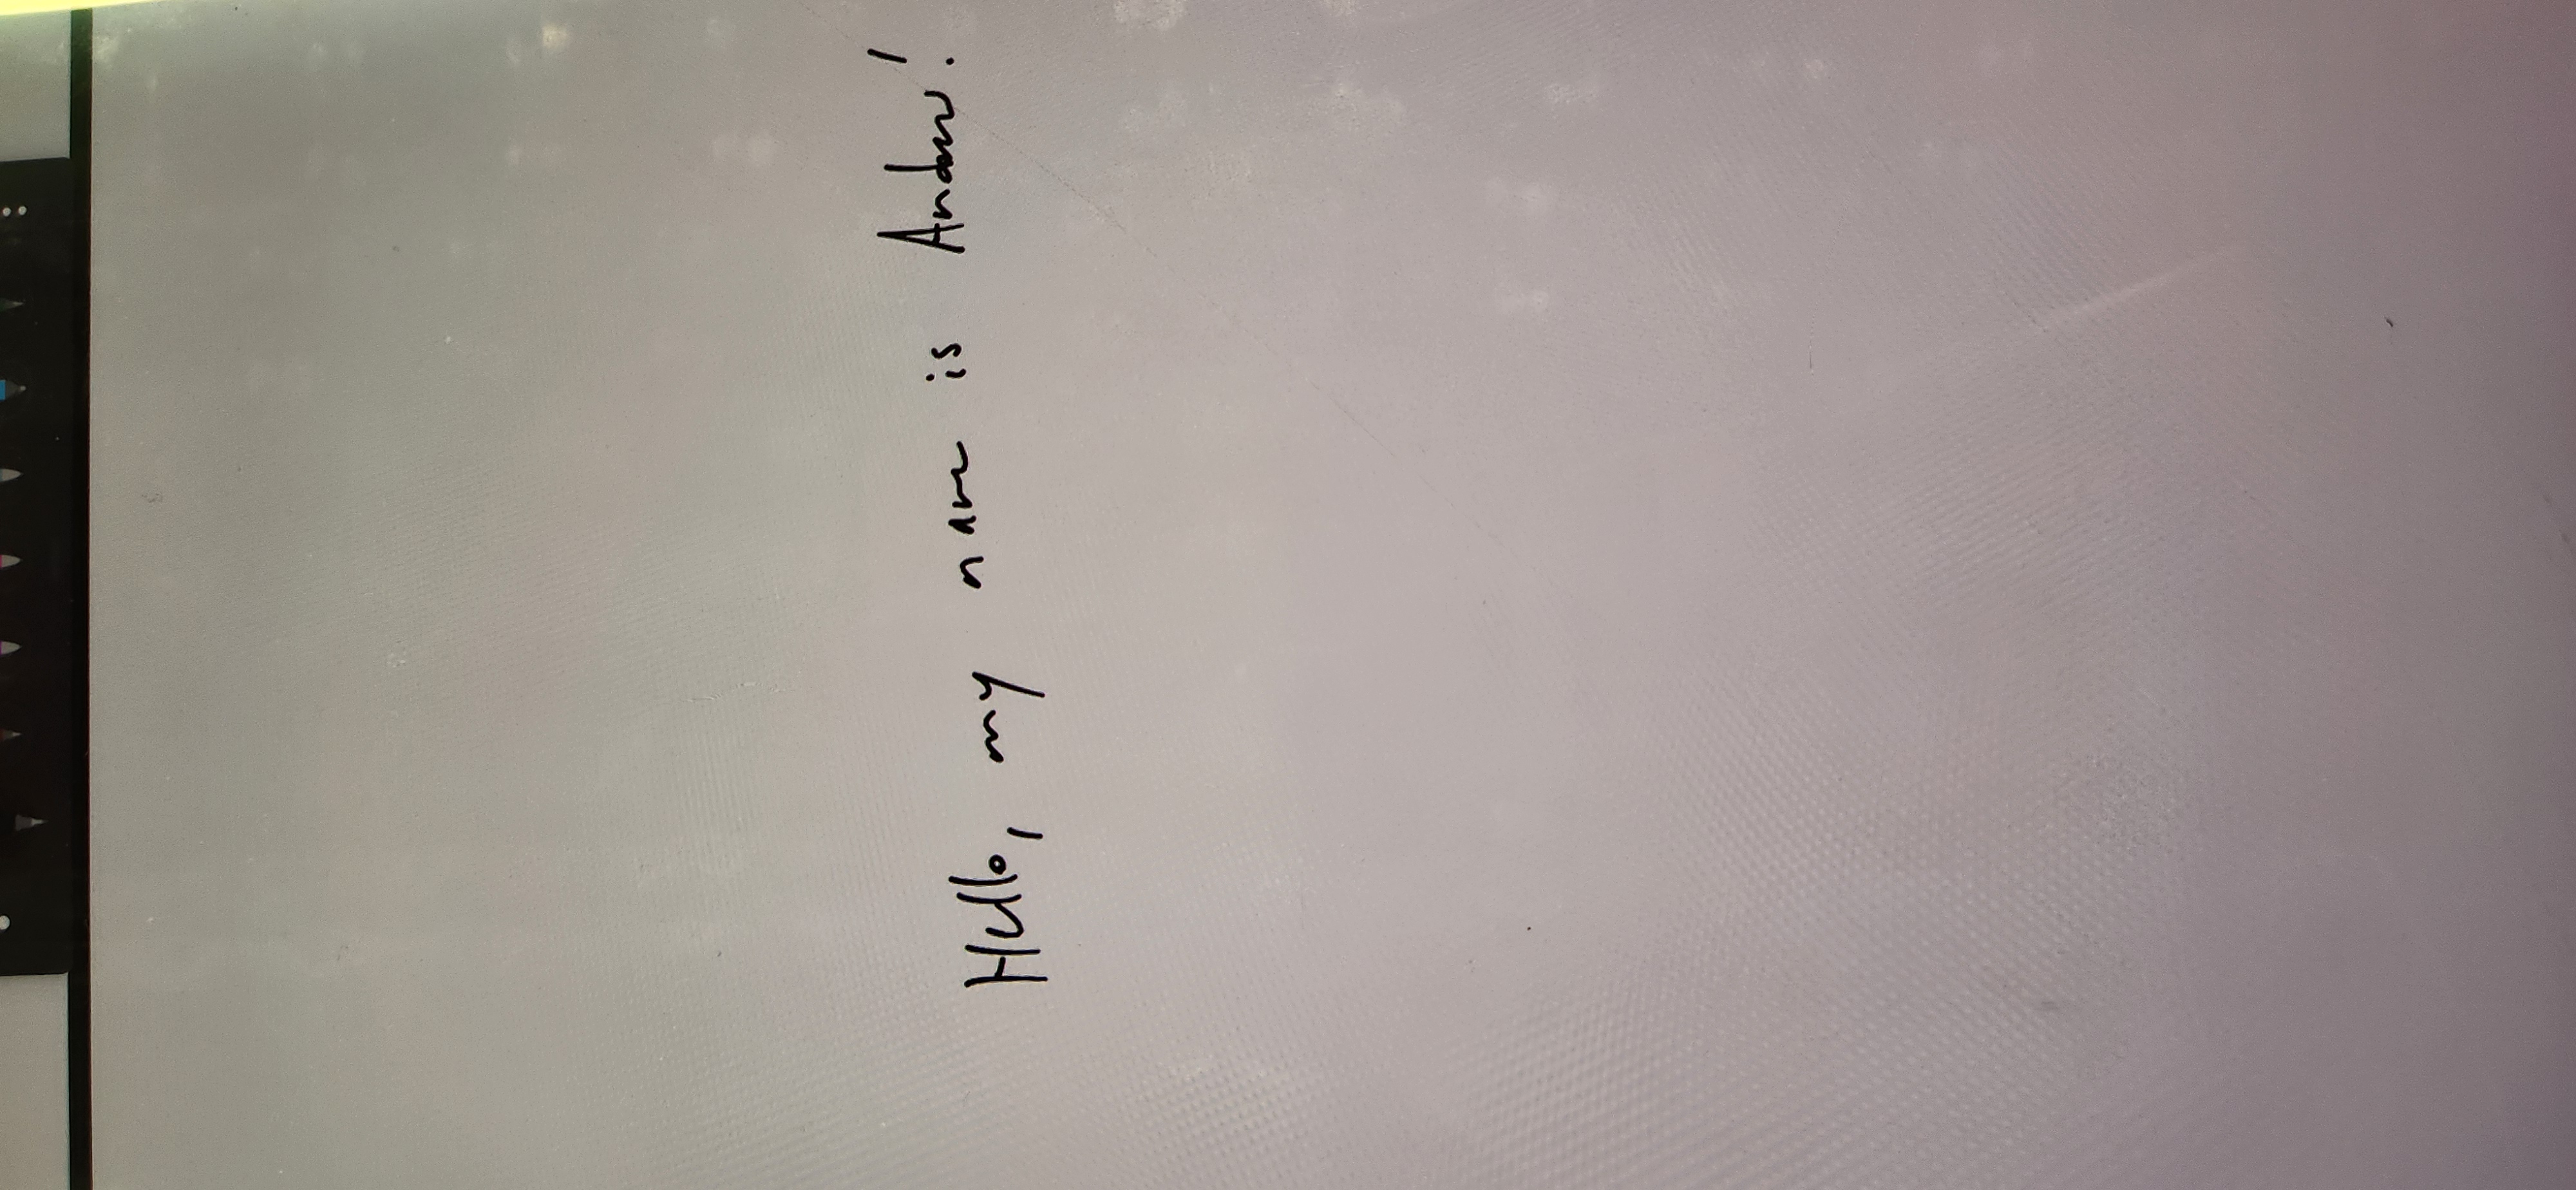 Hello, my name is Andrew!